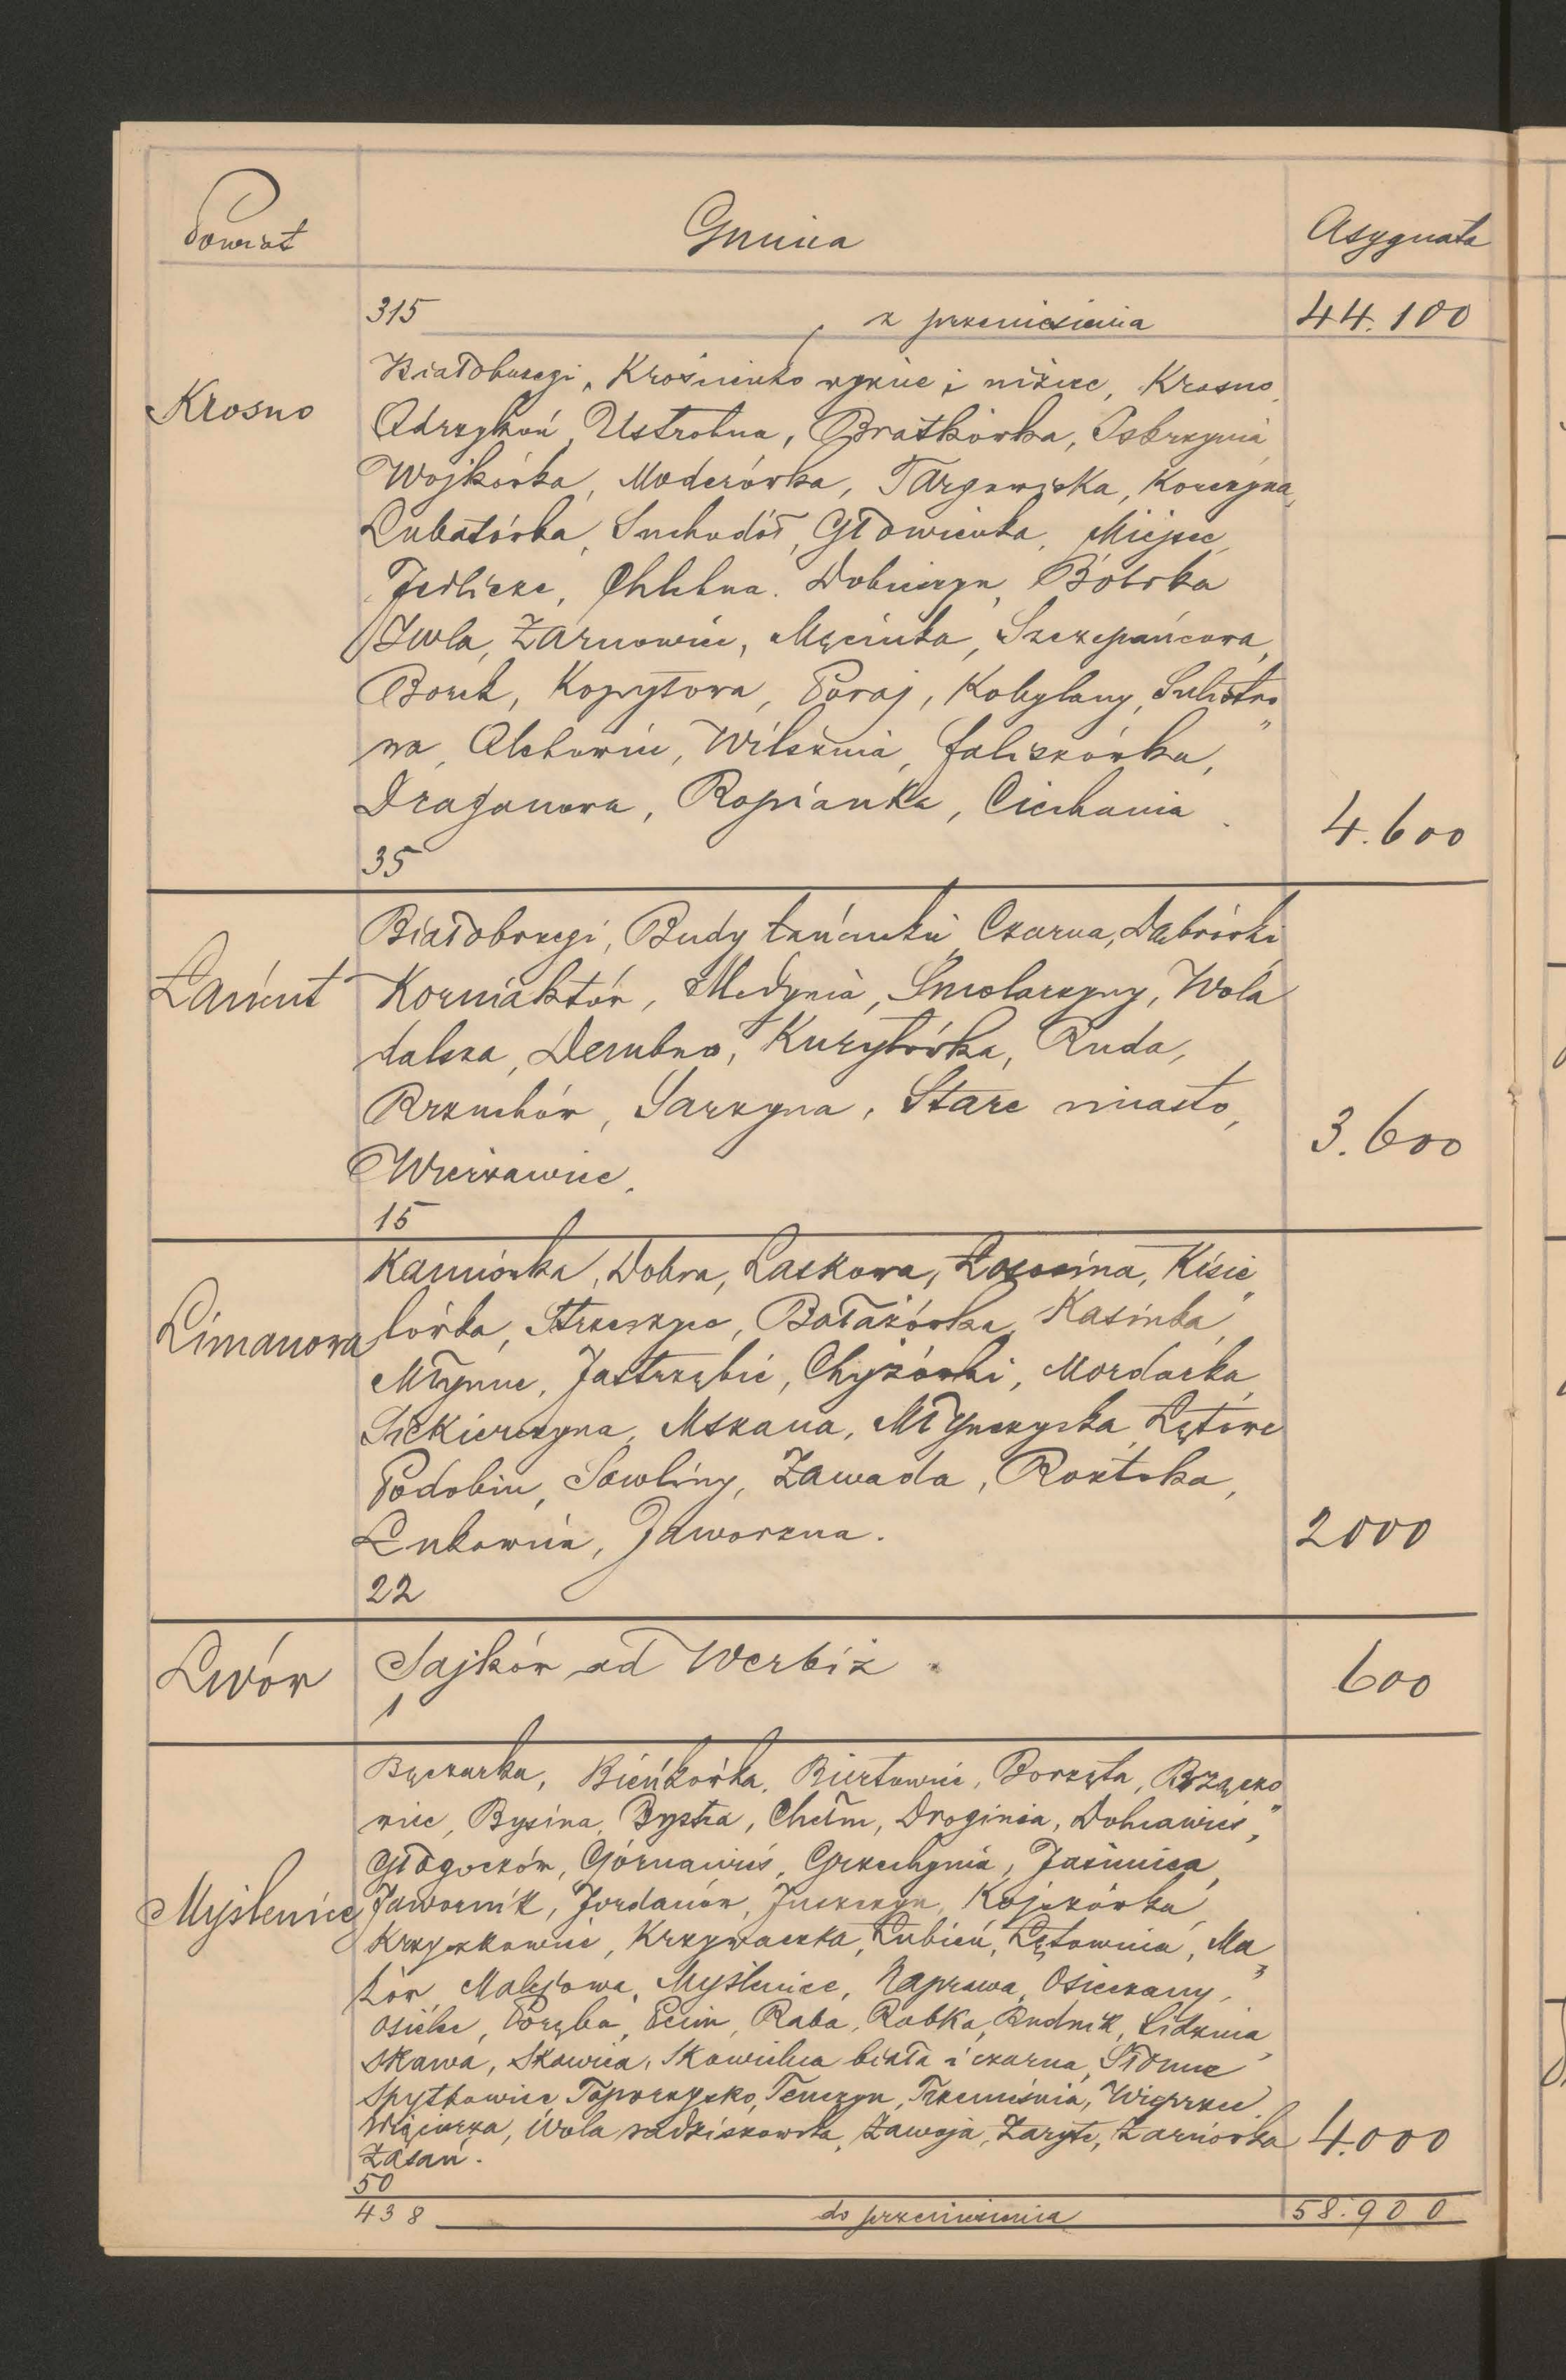 Powiat Gmina Asygnata
315 z przeniesienia 44.100
Krosno
Białobrzegi, Krościenko wyżne i niżne, Krosno,
Odrzykoń, Ustrobna, Bratkówka, Iskrzynia
Wojkówka, Moderówka, Targowiska, Korczyna,
Lubatówka, Suchodół, Głowienka, Miejsce,
Jedlicze, Chlebna. Dobieszyn, Bóbrka
Iwla, Żarnowiec, Męcinka, Szczepańcowa,
Borek, Kopytowa, Poraj, Kobylany, Sulistro„
wa, Olchowiec, Wilsznia, Faliszówka,
Draganowa, Ropianka, Ciechania. 4.600
35
Łańcut
Białobrzegi, Budy łańcuckie, Czarna, Dąbrówki
Korniaktów, Medynia, Smolarzyny, Wola
dalsza, Dembno, Kuryłówka, Ruda,
Brzuchów, Sarzyna, Stare miasto, 3.600
Wierzawice.
15
Limanowa
Kamionka, Dobra, Laskowa, Łososina, Kisie„
lówka, Strzeszyce, Bałażówka, Kasinka,
Młynne, Jastrzębie, Chyżówki, Mordarka,
Siekierczyna, Mszana, Młynczyska, Łętowe
Podobin, Sowliny, Zawada, Roztoka,
Łukowica, Jaworzna. 2000
22
Lwów Sajków ad Werbiż. 600
1
Myślenice
Bęczarka, Bieńkówka, Biertowice, Borzęta, Brzączo„
wice, Bysina, Bystra, Chełm, Droginia, Dolnawieś,
Głogoczów, Górnawieś, Grzechynia, Jasienica,
Jawornik, Jordanów, Juszczyn, Kojszówka,
Krzyszkowice, Krzywaczka, Łubień, Łętownia, Ma„
ków, Malejowa, Myślenice, Naprawa, Osieczany,
Osielec, Poręba, Pcim, Raba, Rabka, Rudnik, Sidzina,
Skawa, Skawica, Skawinka biała i czarna, Słone
Spytkowice, Toporzysko, Tenczyn, Trzemeśnia, Więprzec
Więciórka, Wola radziszowska, Zawoja, Zaryte, Żarnówka 4.000
Zasań.
50
438 do przeniesienia 58.900